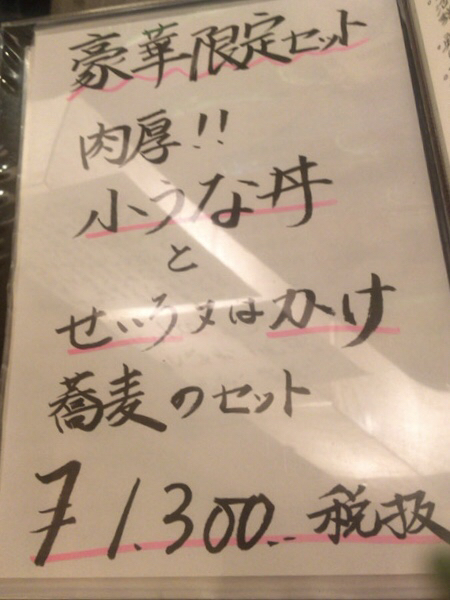 豪華限定セット
肉厚!!
小うな丼
と
せいろ又はかけ
蕎麦のセット
¥1.300.- 税抜